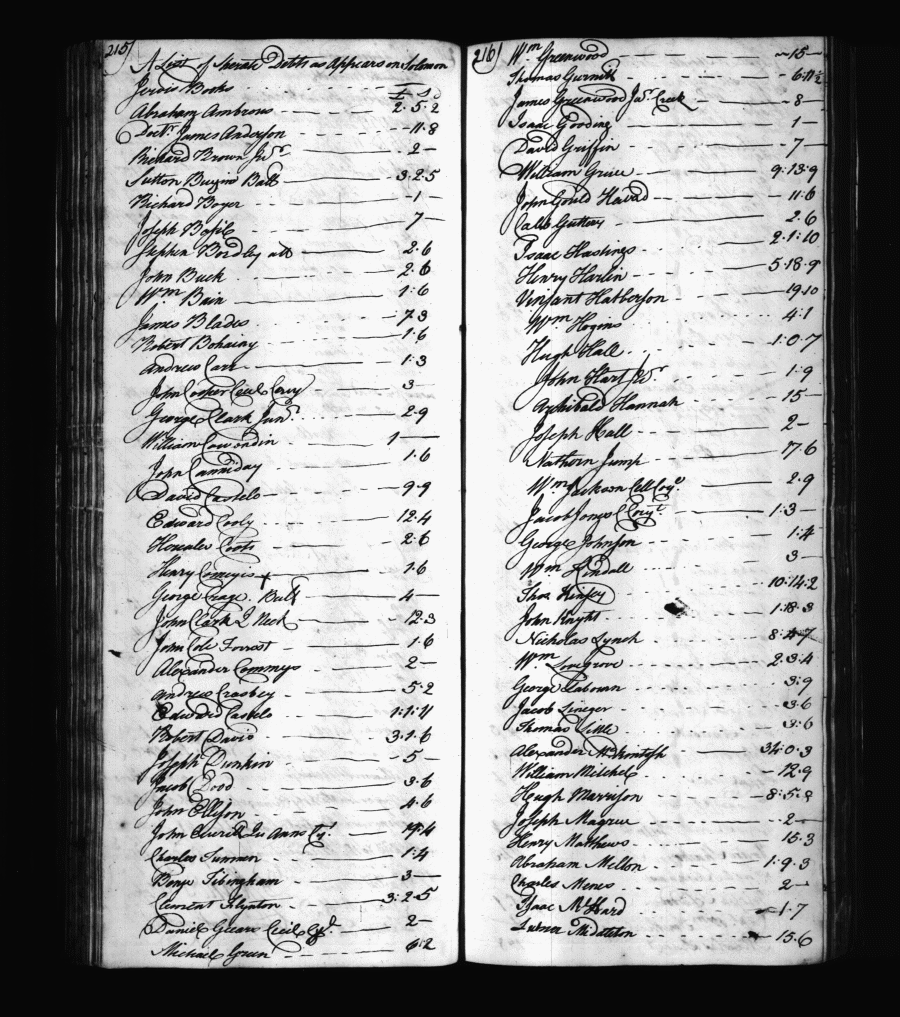 215
A List of Sperate Debts as Appears on Solomon
Jervis Books £ s d
Abraham Ambrous 2.5.2
Doctr. James Anderson 11.8
Richard Brown Junr. 2
Sutton Burgin Balt 3.2.5
Richard Boyer 1
Joseph 7
Stephen Bordley att 2.6
John Buck 2.6
Wm. Bain 1.6
James Blades 7.3
Robert 1.6
Andrew Carr 1.3
John Cooper Cecil County 3
George Clark Junr. 2.9
William 1
John Canniday 1.6
David Castelo 9.9
Edward Cooly 12.4
Hercules Coots 2.6
Henry Comegis 1.6
George Balt 4
John Clark I Neck 12.3
John Cole Forrest 1.6
Alexander Commys 2
Andrew Crosbey 5.2
Edward Castelo 1.1.11
Robert David 3.1.6
Joseph Dunkin 5
Jacob Dood 3.6
John Ellison 4.6
John Quen Anns Cy.
Charles 1.4
3
Clement 3.2.5
Daniel Cecil Cy. 2
Michael Green 6.2
216
Wm. Greenwood 15
Thomas Gurnill 6.11½
James Greenwood Jas. Creek 8
Isaac Gooding 1
David Griffin 7
William Grice 9.13.9
John Gould Havad 11.6
Calib Guttery 2.6
Isaac Hastings 2.1.10
Henry Harlin 5.18.9
Vinsant Hatherson 19.10
Wm. Hogins 4.1
Hugh Hall 1.0.7
John Hart 1.9
Archibald Hannah 15
Joseph Hall 2
Nathorn Jump 17.6
Wm. Jackson Cell Coy. 2.9
Jacob Jones Coy. 1.3
George Johnson 1.4
Wm. Kindall 3
Thos. Kinsey 10.14.2
John Knight 1.18.3
Nicholas Lynch
Wm. Lovegrove 2.3.4
George 3.9
Jacob Lineger 3.6
Thomas Little 3.6
Alexander McKintosh 34.0.3
William Mitchel 12.9
Heugh Marrison 8.5.9
Joseph Magrue 2
Henry Matthews 15.3
Abraham Melton 1.9.3
Charles Menes 2
Isaac McHard 1.7
Lutner Middleton 15.6